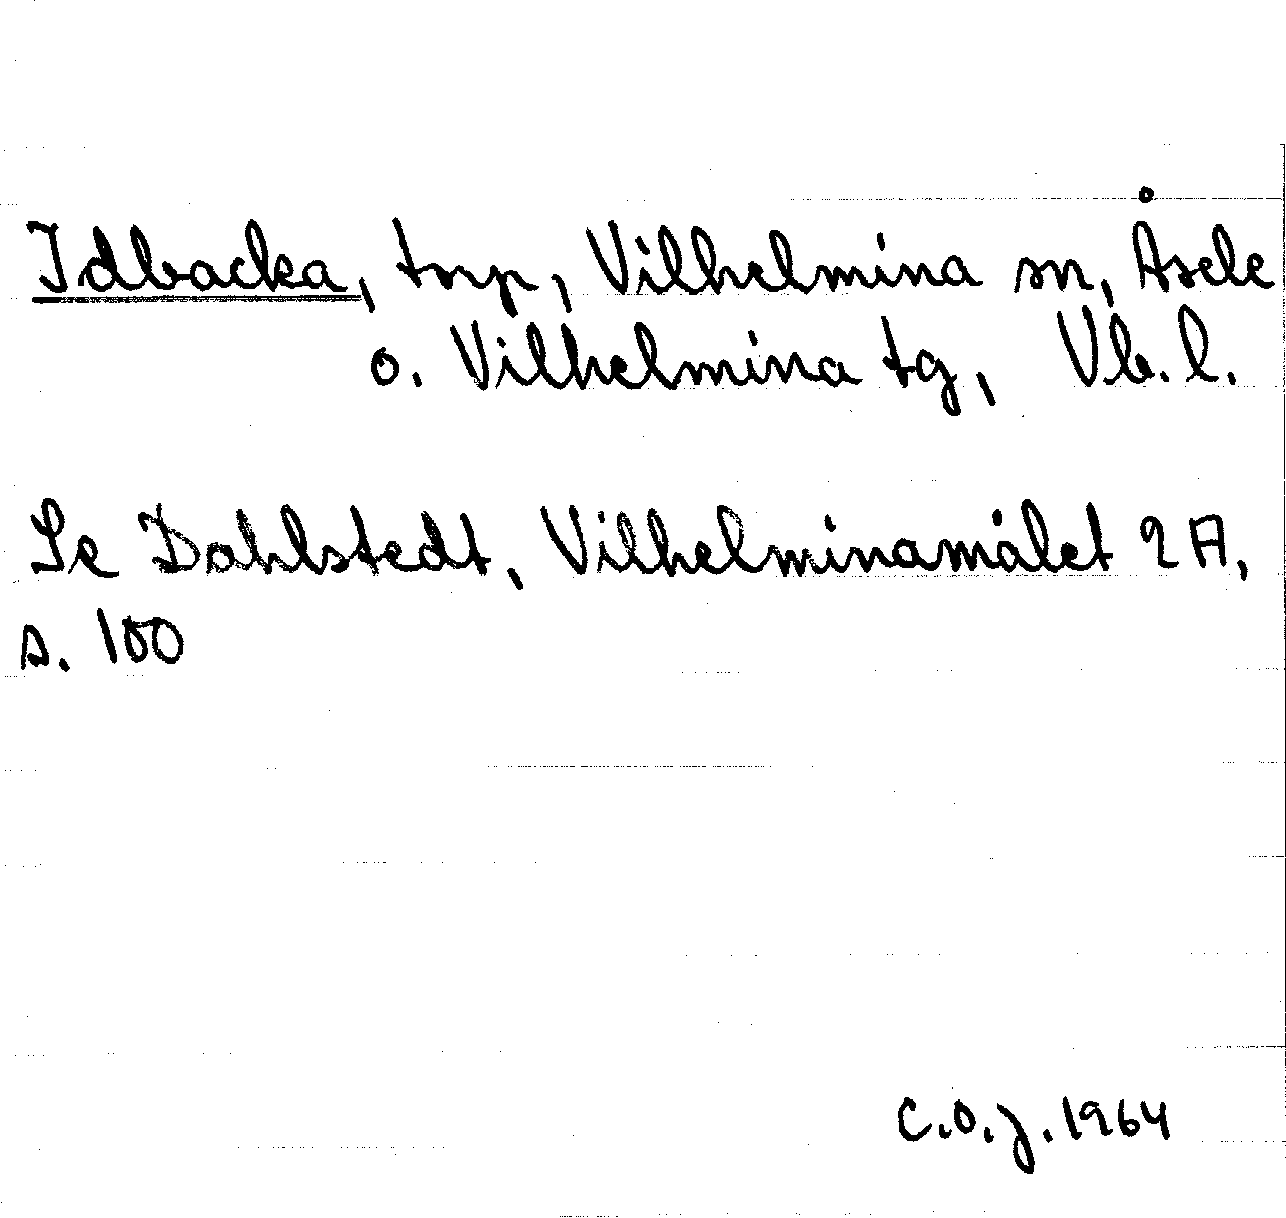 Idbacka, torp, Vilhelmina sn, Åsele
o. Vilhelmina tg, Vb. l.
Se Dahlstedt, Vilhelminamålet 2A,
s. 100
C.O.J. 1964